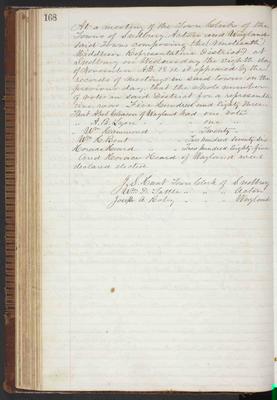 168
At a meeting of the Town Clerks of the
Towns of Sudbury, Acton and Wayland
said Towns composing the
Middlesex Representative District at
Sudbury on Wednesday the eighth day
of November A.D. it appeared by the
records of meetings in said towns on the
previous day, that the whole number
of votes in said District for a representa-
tive was Five hundred and eighty three
That Abel Gleason of Wayland had one vote
" A. B. Lyon " one "
" Wm Hammond " Twenty "
Wm H. Bent " Two hundred seventy six
Horace Heard " Two hundred Eighty five
And Horace Heard of Wayland was
declared elected
J. S. Hunt Town Clerk of Sudbury
Wm D. Tuttle " " " Acton
A. Roby " " " Wayland